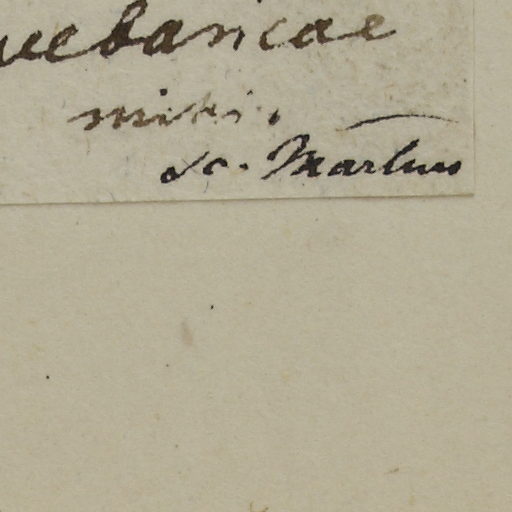 uebanicae
mihi.
sc. Martius